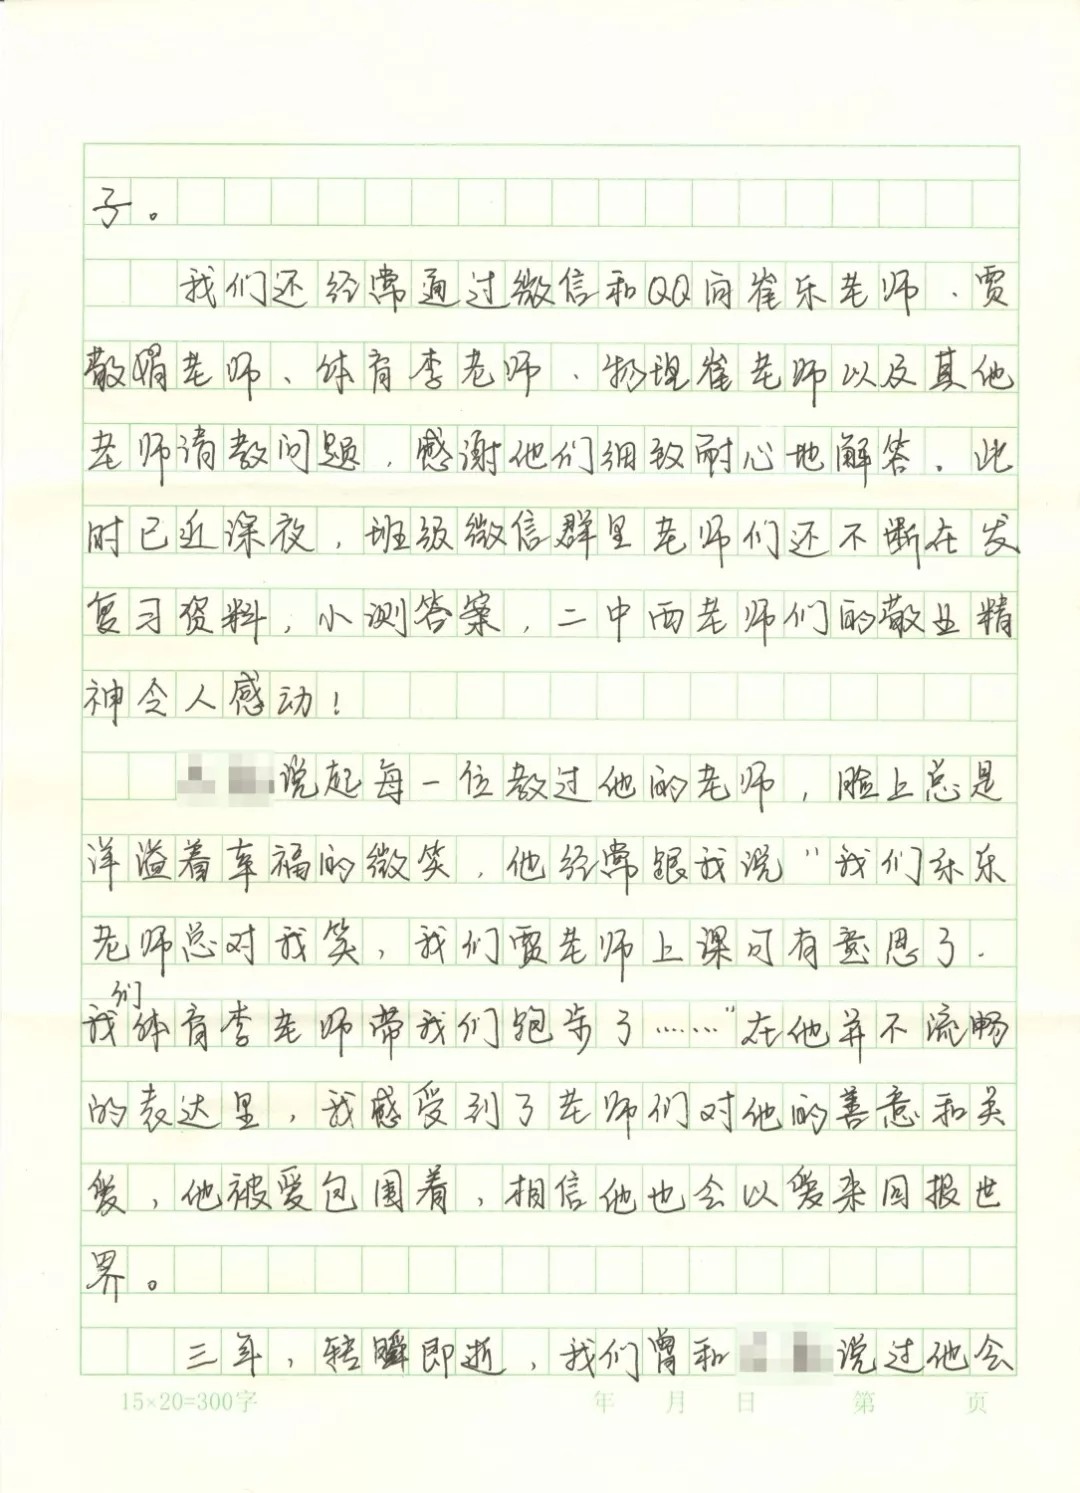 子。
我们还经常通过微信和QQ向崔乐老师、贾
敬娟老师、体育李老师、物理崔老师以及其他
老师请教问题,感谢他们细致耐心地解答。此
时已近深夜,班级微信群里老师们还不断在发
复习资料,小测答案,二中西老师们的敬业精
神令人感动!
说起每一位教过他的老师,脸上总是
洋溢着幸福的微笑,他经常跟我说“我们乐乐
老师总对我笑,我们贾老师上课可有意思了.
我们体育李老师带我们跑步了……”在他并不流畅
的表达里,我感受到了老师们对他的善意和关
爱,他被爱包围着,相信他也会以爱来回报世
界。
三年,转瞬即逝,我们曾和 说过他会
15×20=300字 年 月 日 第 页